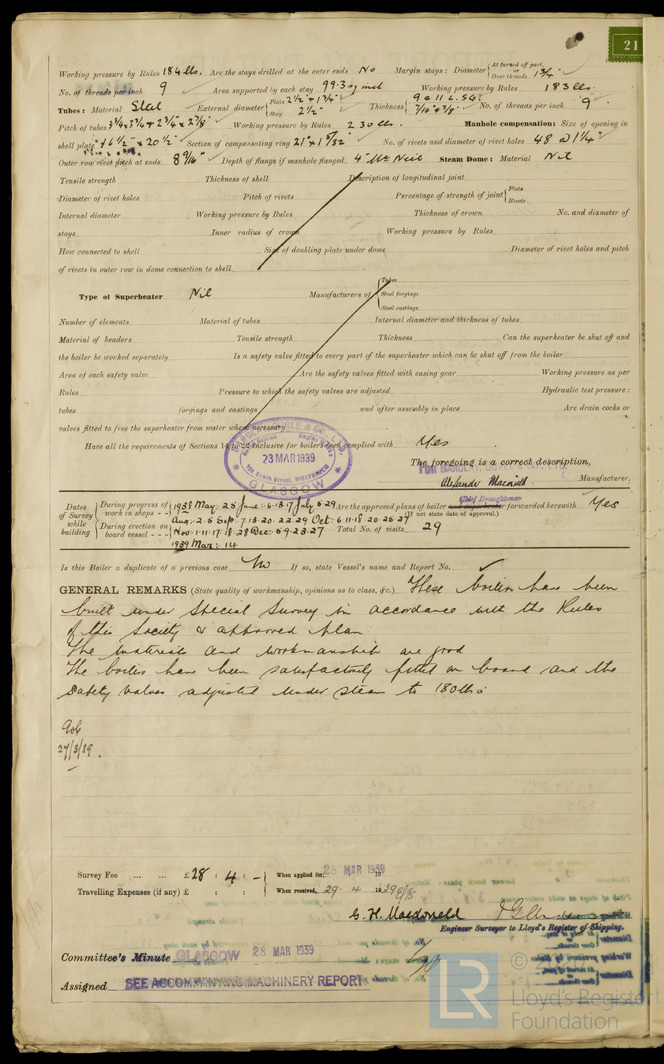 21
Working pressure by Rules 184 lbs. Are the stays drilled at the outer ends No Margin stays: Diameter { At turned off part, or Over threads 1 3/4"
No. of threads per inch 9 Area supported by each stay 99.3 sq ins Working pressure by Rules 183 lbs.
Tubes: Material Steel External diameter { Plain 2 1/2" Stay 2 1/2" Thickness { 9 & 11 L.S.G. 7/16 & 3/8" No. of threads per inch 9
Pitch of tubes 3 3/4 x 3 3/4 & Working pressure by Rules 230 lbs. Manhole compensation: Size of opening in
shell plate 16 1/2" x 20 1/2" Section of compensating ring 21" x 1 5/32" No. of rivets and diameter of rivet holes 48 @ 1 1/4"
Outer row rivet pitch at ends 8 9/16" Depth of flange if manhole flanged 4" McNeil Steam Dome: Material Nil
Tensile strength Thickness of shell Description of longitudinal joint
Diameter of rivet holes Pitch of rivets Percentage of strength of joint { Plate Rivets
Internal diameter Working pressure by Rules Thickness of crown No. and diameter of
stays Inner radius of crown Working pressure by Rules
How connected to shell Size of doubling plate under dome Diameter of rivet holes and pitch
of rivets in outer row in dome connection to shell
Type of Superheater Nil Manufacturers of { Tubes Steel forgings Steel castings
Number of elements Material of tubes Internal diameter and thickness of tubes
Material of headers Tensile strength Thickness Can the superheater be shut off and
the boiler be worked separately Is a safety valve fitted to every part of the superheater which can be shut off from the boiler
Area of each safety valve Are the safety valves fitted with easing gear Working pressure as per
Rules Pressure to which the safety valves are adjusted Hydraulic test pressure:
tubes forgings and castings and after assembly in place Are drain cocks or
valves fitted to free the superheater from water where necessary
Have all the requirements of Sections 14 to 22 inclusive for boilers been complied with Yes
23 MAR 1939
GLASGOW
The foregoing is a correct description,
Alexander Manufacturer.
Chief Draughtsman
Dates of Survey while building { During progress of work in shops - - { 1938 May: 25 June: 6.13.17 July 5.29 Are the approved plans of boiler and superheater forwarded herewith Yes
(If not state date of approval.)
Aug: 2.5 Sep: 7.13.20.22.29 Oct: 6.11.18.20.25.27
During erection on board vessel - - - { Nov: 1.11.17.18.28 Dec: 5.9.23.27 Total No. of visits 29
1939 Mar: 14
Is this Boiler a duplicate of a previous case No If so, state Vessel's name and Report No.
GENERAL REMARKS (State quality of workmanship, opinions as to class, &c.) These boilers have been
built under Special Survey in accordance with the Rules
of this Society & approved plan
The materials and workmanship are good
The boilers have been satisfactorily fitted on board and the
safety valves adjusted under steam to 180 lbs.
27/3/39.
Survey Fee ... ... £28 : 4 : - When applied for, 28 MAR 1939
Travelling Expenses (if any) £ : : When received, 29.4 1939
G. H. Macdonald
Engineer Surveyor to Lloyd's Register of Shipping.
Committee's Minute GLASGOW 28 MAR 1939
Assigned SEE ACCOMPANYING MACHINERY REPORT
LR
© Lloyd's Register
Foundation